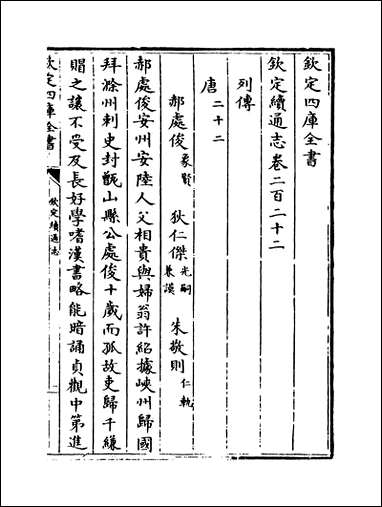 欽定四庫全書
欽定續通志卷二百二十二
列傳
唐二十二
郝處俊象賢 狄仁傑光嗣兼謨 朱敬則仁軌
郝處俊安州安陸人父相貴與婦翁許紹據峽州歸國
拜滁州刺史封甑山縣公處俊十歲而孤故吏歸千縑
賵之讓不受及長好學嗜漢書略能暗誦貞觀中第進
欽定四庫全書
欽定續通志